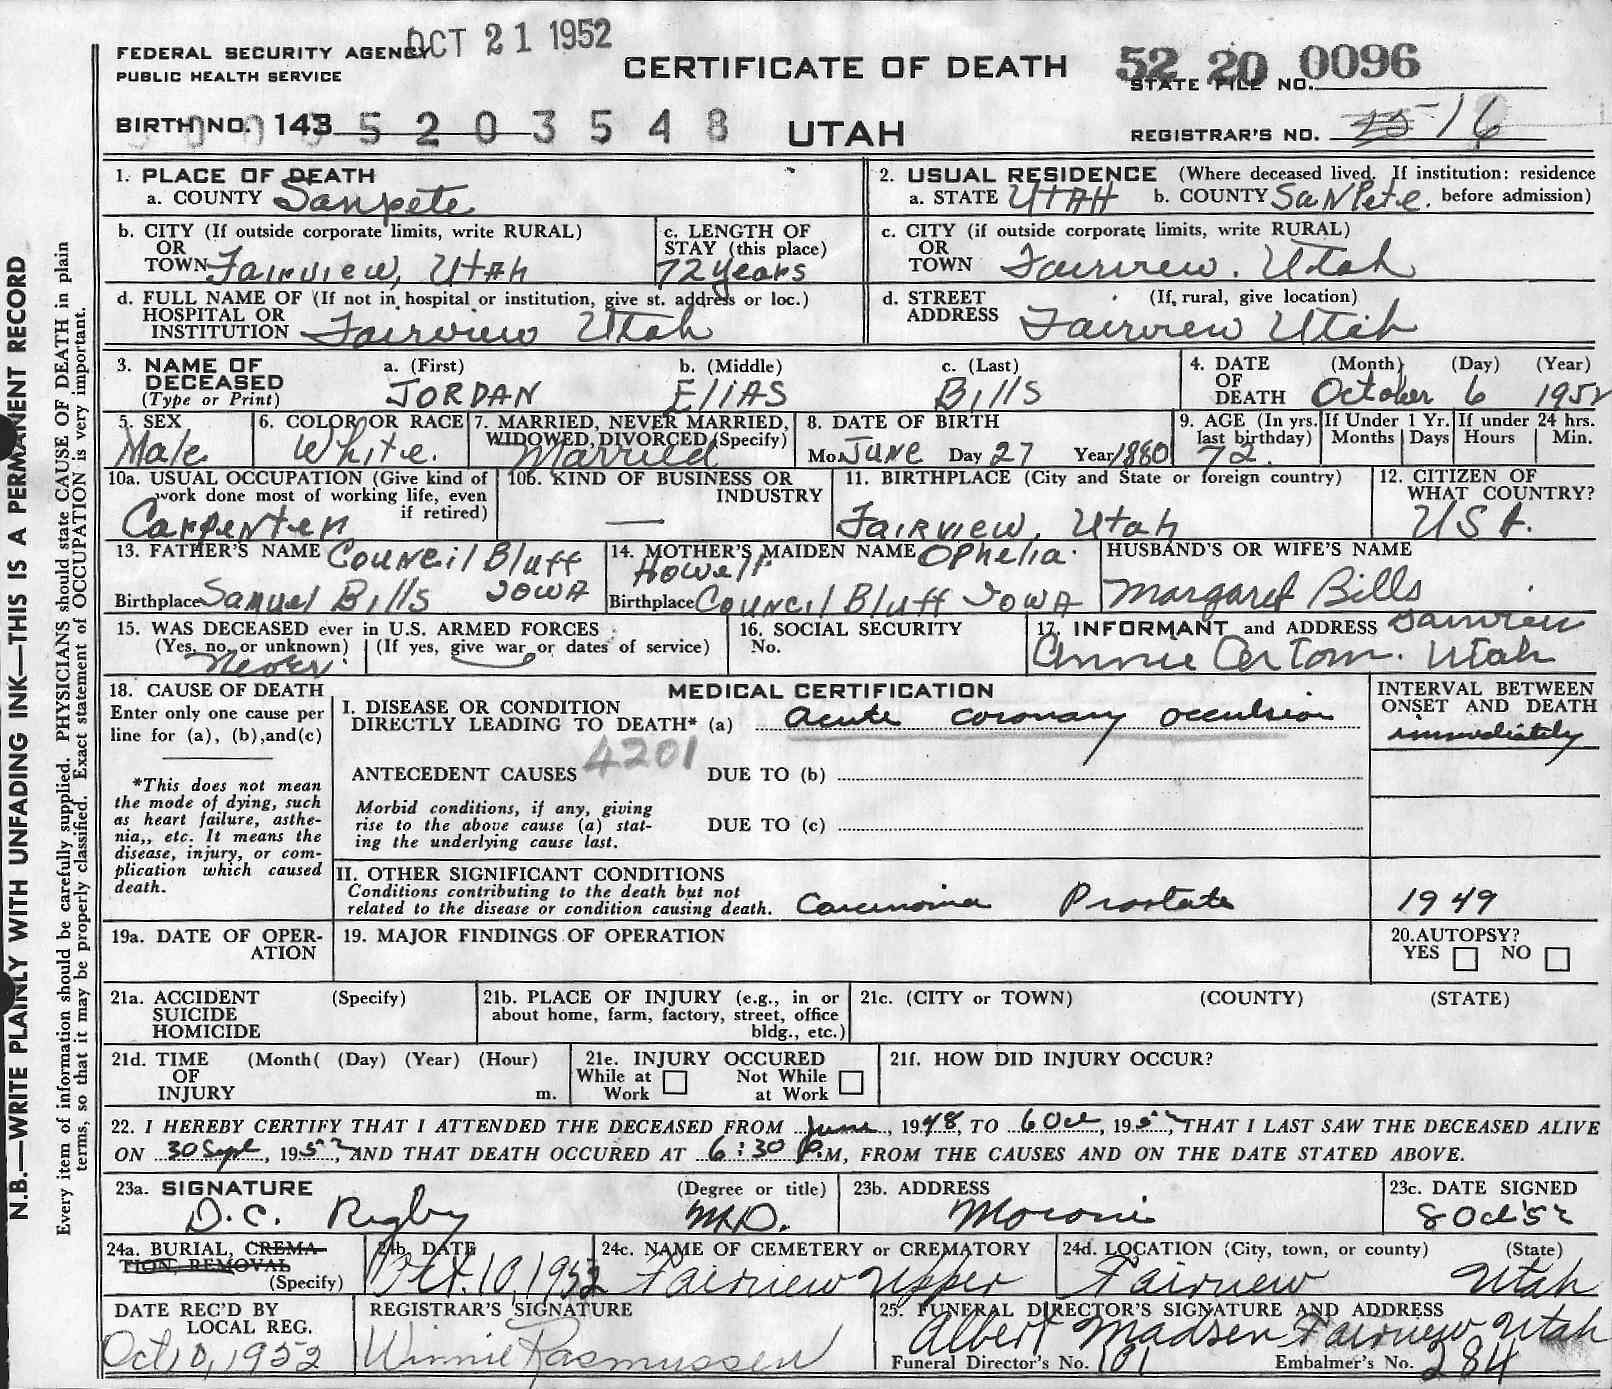 OCT 21 1952
FEDERAL SECURITY AGENCY
PUBLIC HEALTH SERVICE
CERTIFICATE OF DEATH
52 20 0096
STATE FILE NO.
BIRTH NO. 143 5 2 0 3 5 4 8
UTAH
REGISTRAR'S NO. 16
1. PLACE OF DEATH
a. COUNTY Sanpete
2. USUAL RESIDENCE (Where deceased lived. If institution: residence
a. STATE UTAH b. COUNTY SaNPete. before admission)
b. CITY (If outside corporate limits, write RURAL)
OR
TOWN Fairview, Utah
c. LENGTH OF
STAY (this place)
72 years
c. CITY (if outside corporate limits, write RURAL)
OR
TOWN Fairview. Utah
d. FULL NAME OF (If not in hospital or institution, give st. address or loc.)
HOSPITAL OR
INSTITUTION Fairview Utah
d. STREET (If, rural, give location)
ADDRESS Fairview Utah
3. NAME OF a. (First) b. (Middle) c. (Last)
DECEASED
(Type or Print) JORDAN EliAS Bills
4. DATE (Month) (Day) (Year)
OF
DEATH October 6 1952
5. SEX
Male
6. COLOR OR RACE
White.
7. MARRIED, NEVER MARRIED,
WIDOWED, DIVORCED (Specify)
Married
8. DATE OF BIRTH
Mo. June Day 27 Year 1880
9. AGE (In yrs. last birthday)
72.
If Under 1 Yr.
Months Days
If under 24 hrs.
Hours Min.
10a. USUAL OCCUPATION (Give kind of
work done most of working life, even
if retired)
Carpenter
10b. KIND OF BUSINESS OR
INDUSTRY
—
11. BIRTHPLACE (City and State or foreign country)
Fairview, Utah
12. CITIZEN OF
WHAT COUNTRY?
USA.
13. FATHER'S NAME Council Bluff
Birthplace Samuel Bills IOWA
14. MOTHER'S MAIDEN NAME Ophelia
Howell
Birthplace Council Bluff IOWA
HUSBAND'S OR WIFE'S NAME
Margaret Bills
15. WAS DECEASED ever in U.S. ARMED FORCES
(Yes, no, or unknown) (If yes, give war or dates of service)
Never
16. SOCIAL SECURITY
No.
17. INFORMANT and ADDRESS Fairview
Annie Utah
18. CAUSE OF DEATH
Enter only one cause per
line for (a), (b),and(c)
*This does not mean
the mode of dying, such
as heart failure, asthe-
nia,, etc. It means the
disease, injury, or com-
plication which caused
death.
MEDICAL CERTIFICATION
I. DISEASE OR CONDITION
DIRECTLY LEADING TO DEATH* (a) acute coronary occulsion
4201
ANTECEDENT CAUSES DUE TO (b)
Morbid conditions, if any, giving
rise to the above cause (a) stat-
ing the underlying cause last.
DUE TO (c)
INTERVAL BETWEEN
ONSET AND DEATH
immediately
II. OTHER SIGNIFICANT CONDITIONS
Conditions contributing to the death but not
related to the disease or condition causing death. Carcinoma Prostate
1949
19a. DATE OF OPER-
ATION
19. MAJOR FINDINGS OF OPERATION
20.AUTOPSY?
YES NO
21a. ACCIDENT (Specify)
SUICIDE
HOMICIDE
21b. PLACE OF INJURY (e.g., in or
about home, farm, factory, street, office
bldg., etc.)
21c. (CITY or TOWN) (COUNTY) (STATE)
21d. TIME (Month( (Day) (Year) (Hour)
OF
INJURY m.
21e. INJURY OCCURED
While at Not While
Work at Work
21f. HOW DID INJURY OCCUR?
22. I HEREBY CERTIFY THAT I ATTENDED THE DECEASED FROM June, 1948, TO 6 Oct, 1952, THAT I LAST SAW THE DECEASED ALIVE
ON 30 Sept, 1952, AND THAT DEATH OCCURED AT 6:30 P.M, FROM THE CAUSES AND ON THE DATE STATED ABOVE.
23a. SIGNATURE (Degree or title)
D.C. Rigby M.D.
23b. ADDRESS
Moroni
23c. DATE SIGNED
8 Oct 52
24a. BURIAL, CREMA-
TION, REMOVAL
(Specify)
24b. DATE
Oct. 10, 1952
24c. NAME OF CEMETERY or CREMATORY
Fairview Upper
24d. LOCATION (City, town, or county) (State)
Fairview Utah
DATE REC'D BY
LOCAL REG.
Oct 10, 1952
REGISTRAR'S SIGNATURE
Winnie Rasmussen
25. FUNERAL DIRECTOR'S SIGNATURE AND ADDRESS
Albert Madsen Fairview Utah
Funeral Director's No. 101 Embalmer's No. 284
N.B.—WRITE PLAINLY WITH UNFADING INK—THIS IS A PERMANENT RECORD
Every item of information should be carefully supplied. PHYSICIANS should state CAUSE OF DEATH in plain
terms, so that it may be properly classified. Exact statement of OCCUPATION is very important.